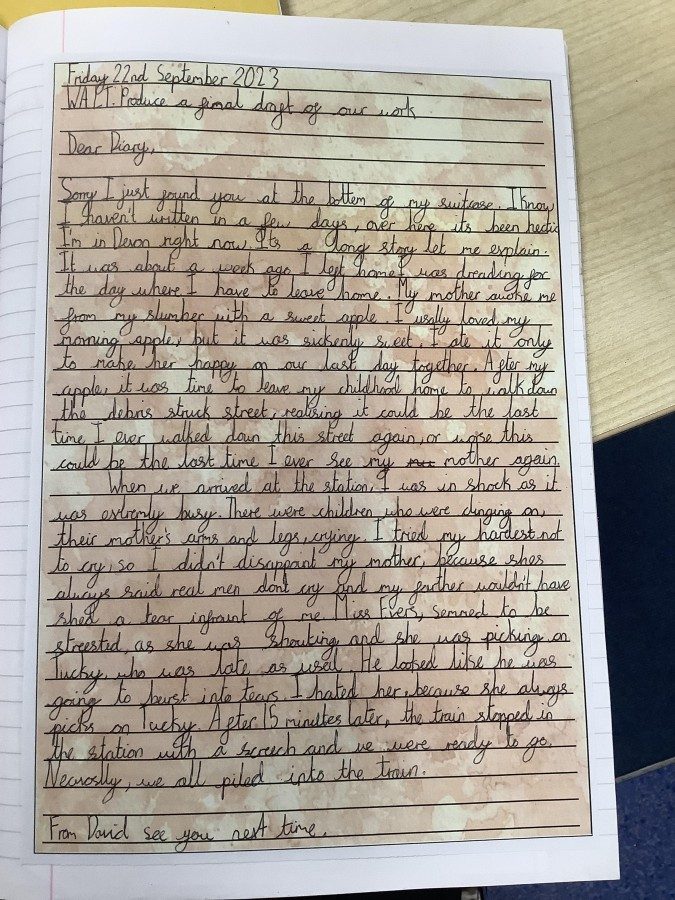 Friday 22nd September 2023
WALT: Produce a final draft of our work
Dear Diary,
Sorry I just found you at the bottem of my suitcase. I know
I haven't written in a few days, over here its been hectic
I'm in Devon right now. Its a long story let me explain.
It was about a week ago I left home I was dreading for
the day where I have to leave home. My mother awoke me
from my slumber with a sweet apple. I usally loved my
morning apple, but it was sickenly sweet, I ate it only
to make her happy on our last day together. After my
apple, it was time to leave my childhood home to walk down
the debris struck street, realising it could be the last
time I ever walked down this street again, or worse this
could be the last time I ever see my mother again.
When we arrived at the station, I was in shock as it
was extremly busy. There were children who were clinging on,
their mother's arms and legs, crying. I tried my hardest not
to cry, so I didn't disappoint my mother, because shes
always said real men dont cry and my farther wouldn't have
shed a tear infront of me. Miss Evers, semmed to be
streested, as she was shouting and she was picking on
Tucky, who was late as usal. He looked like he was
going to burst into tears. I hated her, because she always
picks on Tucky. After 15 minutes later, the train stopped in
the station with a screech and we were ready to go.
Necroslly, we all piled into the train.
From David see you next time.